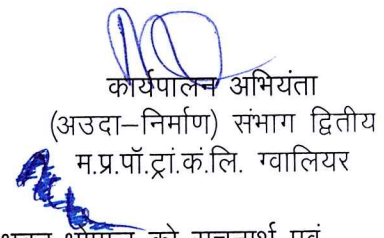 कार्यपालन अभियंता
(अउदा–निर्माण) संभाग द्वितीय
म.प्र.पॉ.ट्रां.कं.लि. ग्वालियर
को सूचनार्थ एवं